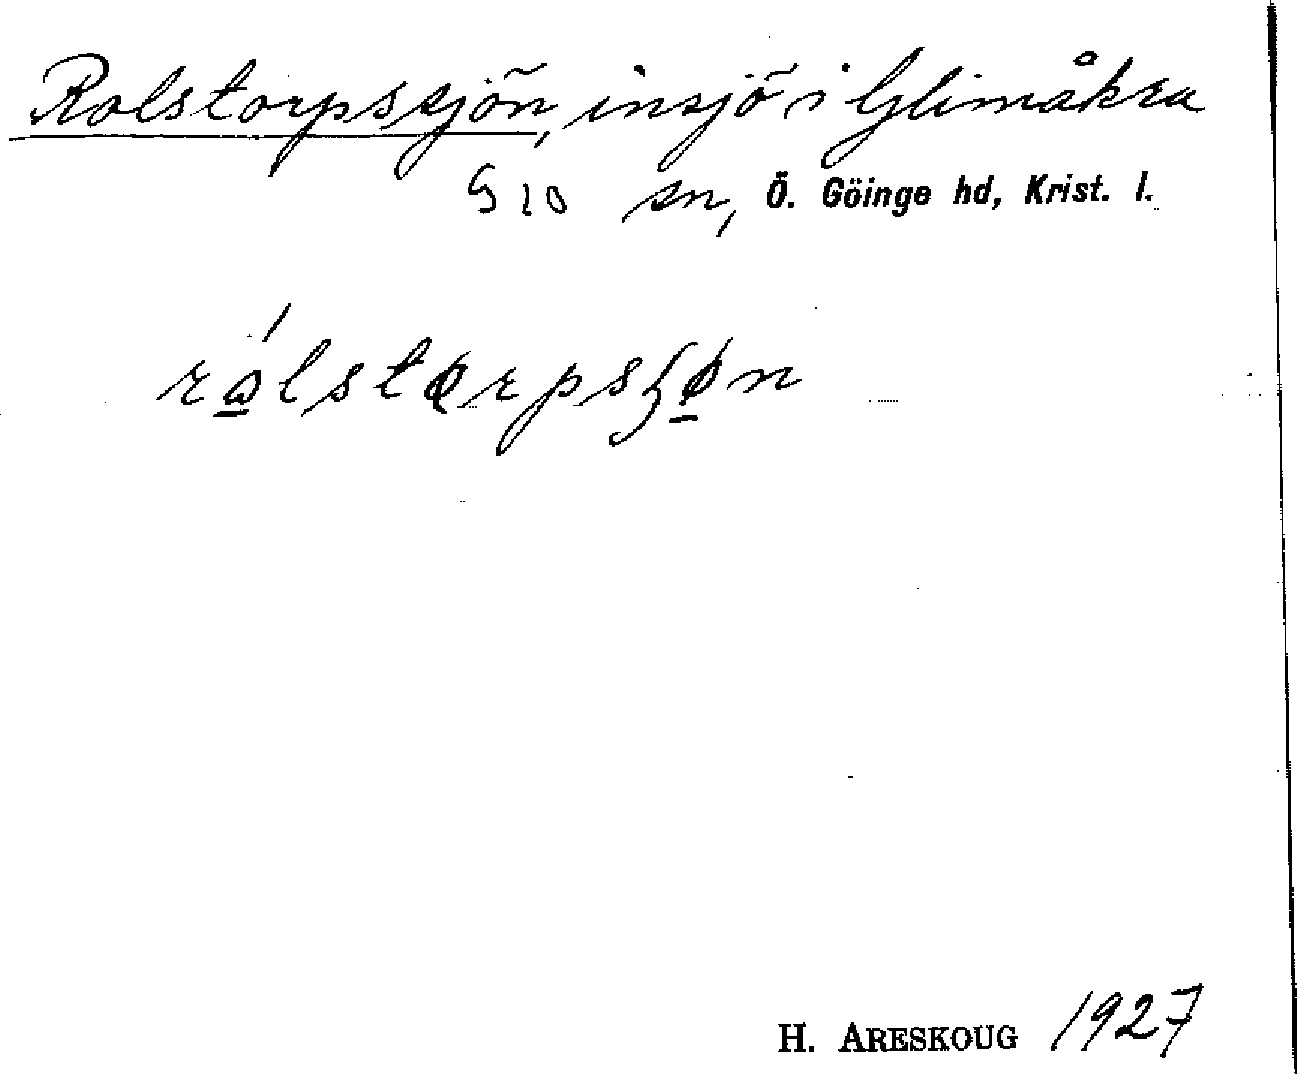 Rolstorpssjön, insjö i Glimåkra
G 10 sn, Ö. Göinge hd, Krist. l.
rålstørpsʃøn
H. ARESKOUG 1927